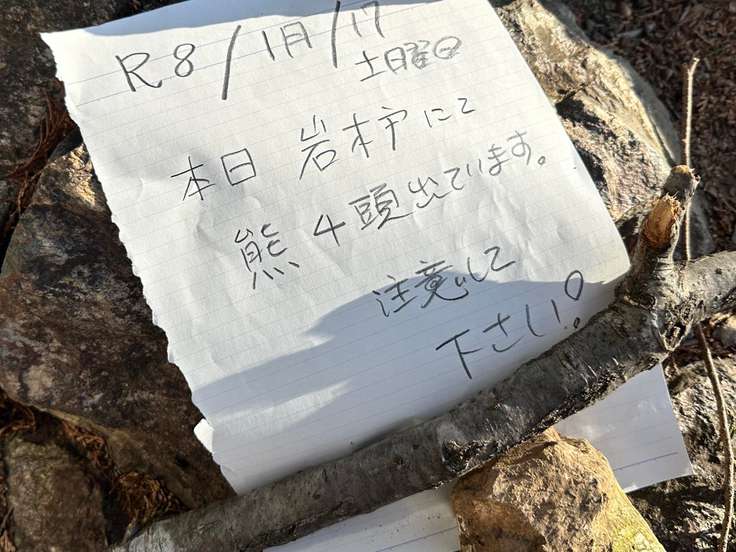 R8/1月/17
土曜日
本日 岩本戸にて
熊 4頭出ています。
注意して
下さい!